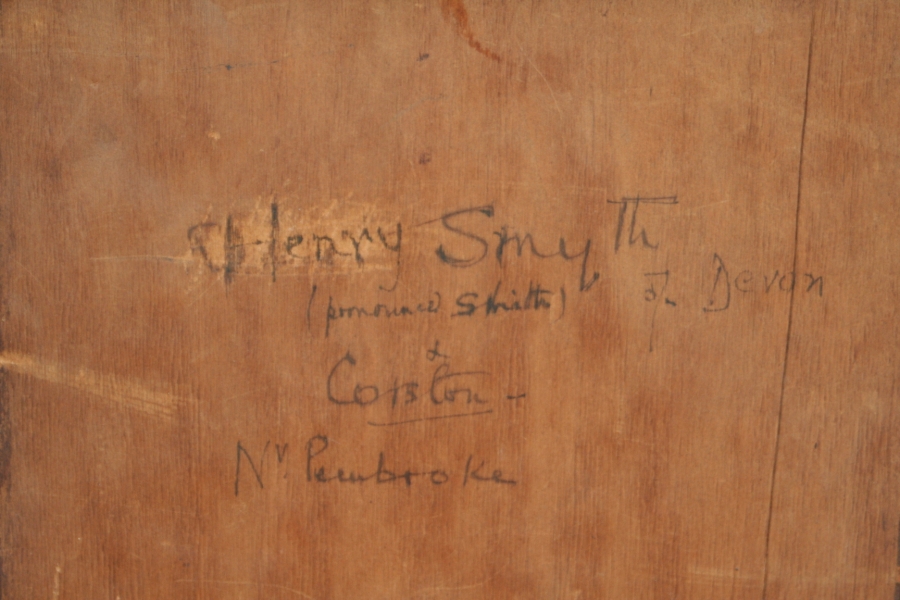 Henry Smyth
of Devon
(pronounced Smith)
&
Corston -
Nr Pembroke